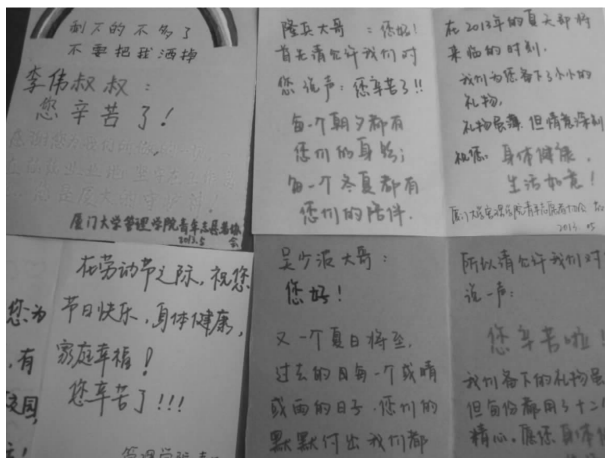 剩下的不多了
不要把我洒掉
李伟叔叔：
您辛苦了！
厦门大学管理学院青年志愿者协会
2013.5
隆兵大哥：您好！
首先请允许我们对
您说声：您辛苦了!!
每一个朝夕都有
您们的身影；
每一个冬夏都有
您们的陪伴.
在2013年的夏天即将
来临的时刻.
我们为您备下了小小的
礼物,
礼物虽薄,但情意深刻
祝您 身体健康,
生活如意！
2013.05
您为
,有
校园,
在劳动节之际,祝您
节日快乐,身体健康,
家庭幸福！
您辛苦了!!!
管理学院
吴少波大哥：
您好！
又一个夏日将至,
过去的日每一个或晴
或雨的日子,您们的
默默付出我们都
所以请允许我们对
说一声：
您辛苦啦！
我们备下的礼物虽
但每份都用了十二
精心,愿您身体